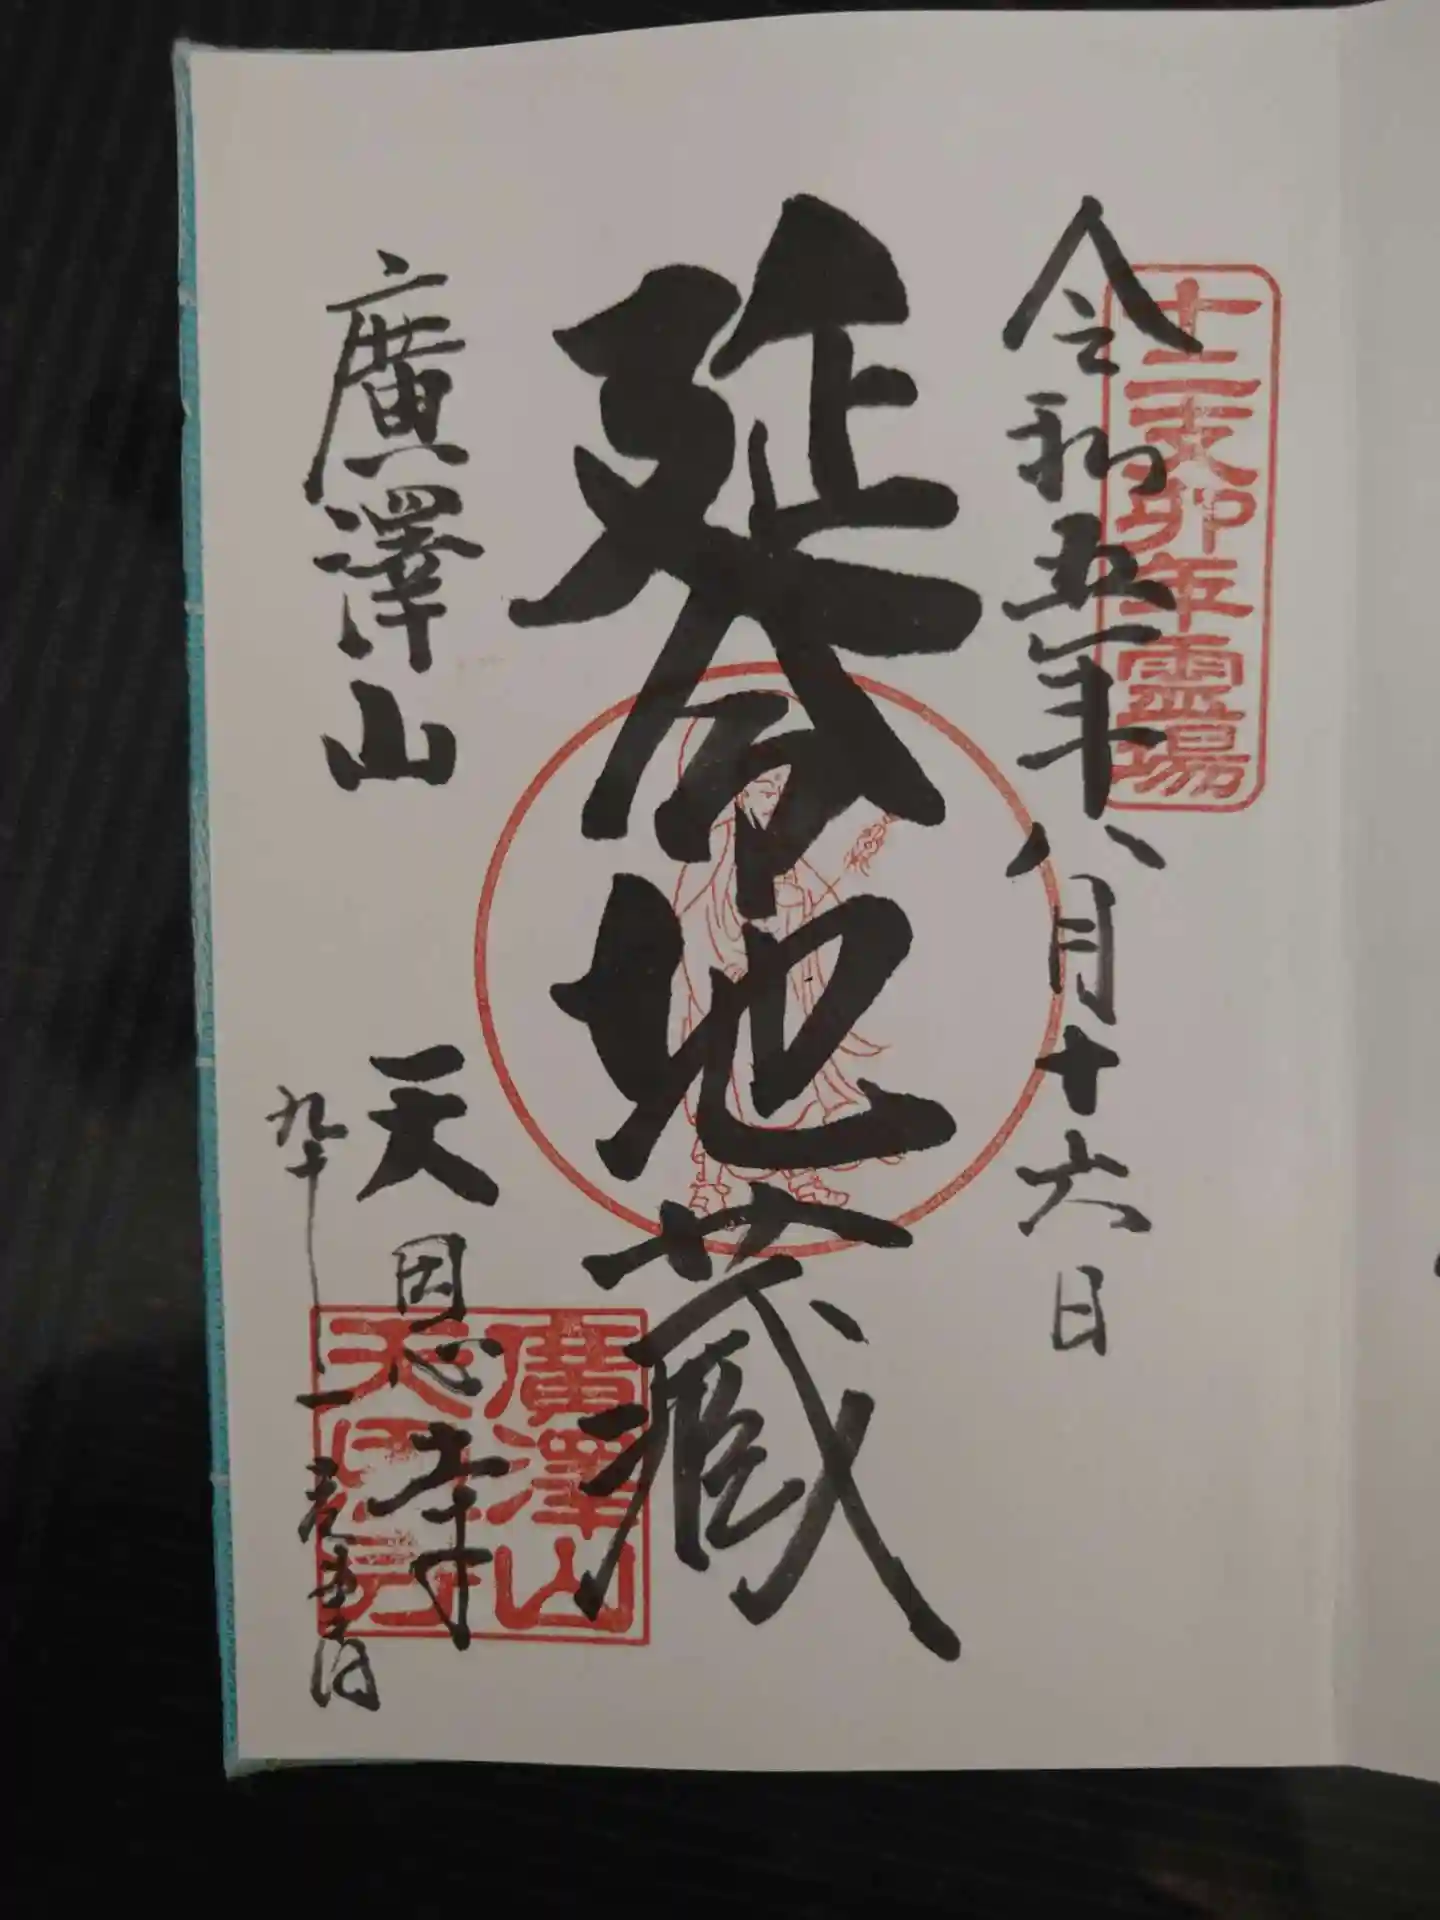 十二支卯年霊場
令和五年八月十六日
延命地蔵
廣澤山
天恩寺
廣澤山
天恩寺
九十一